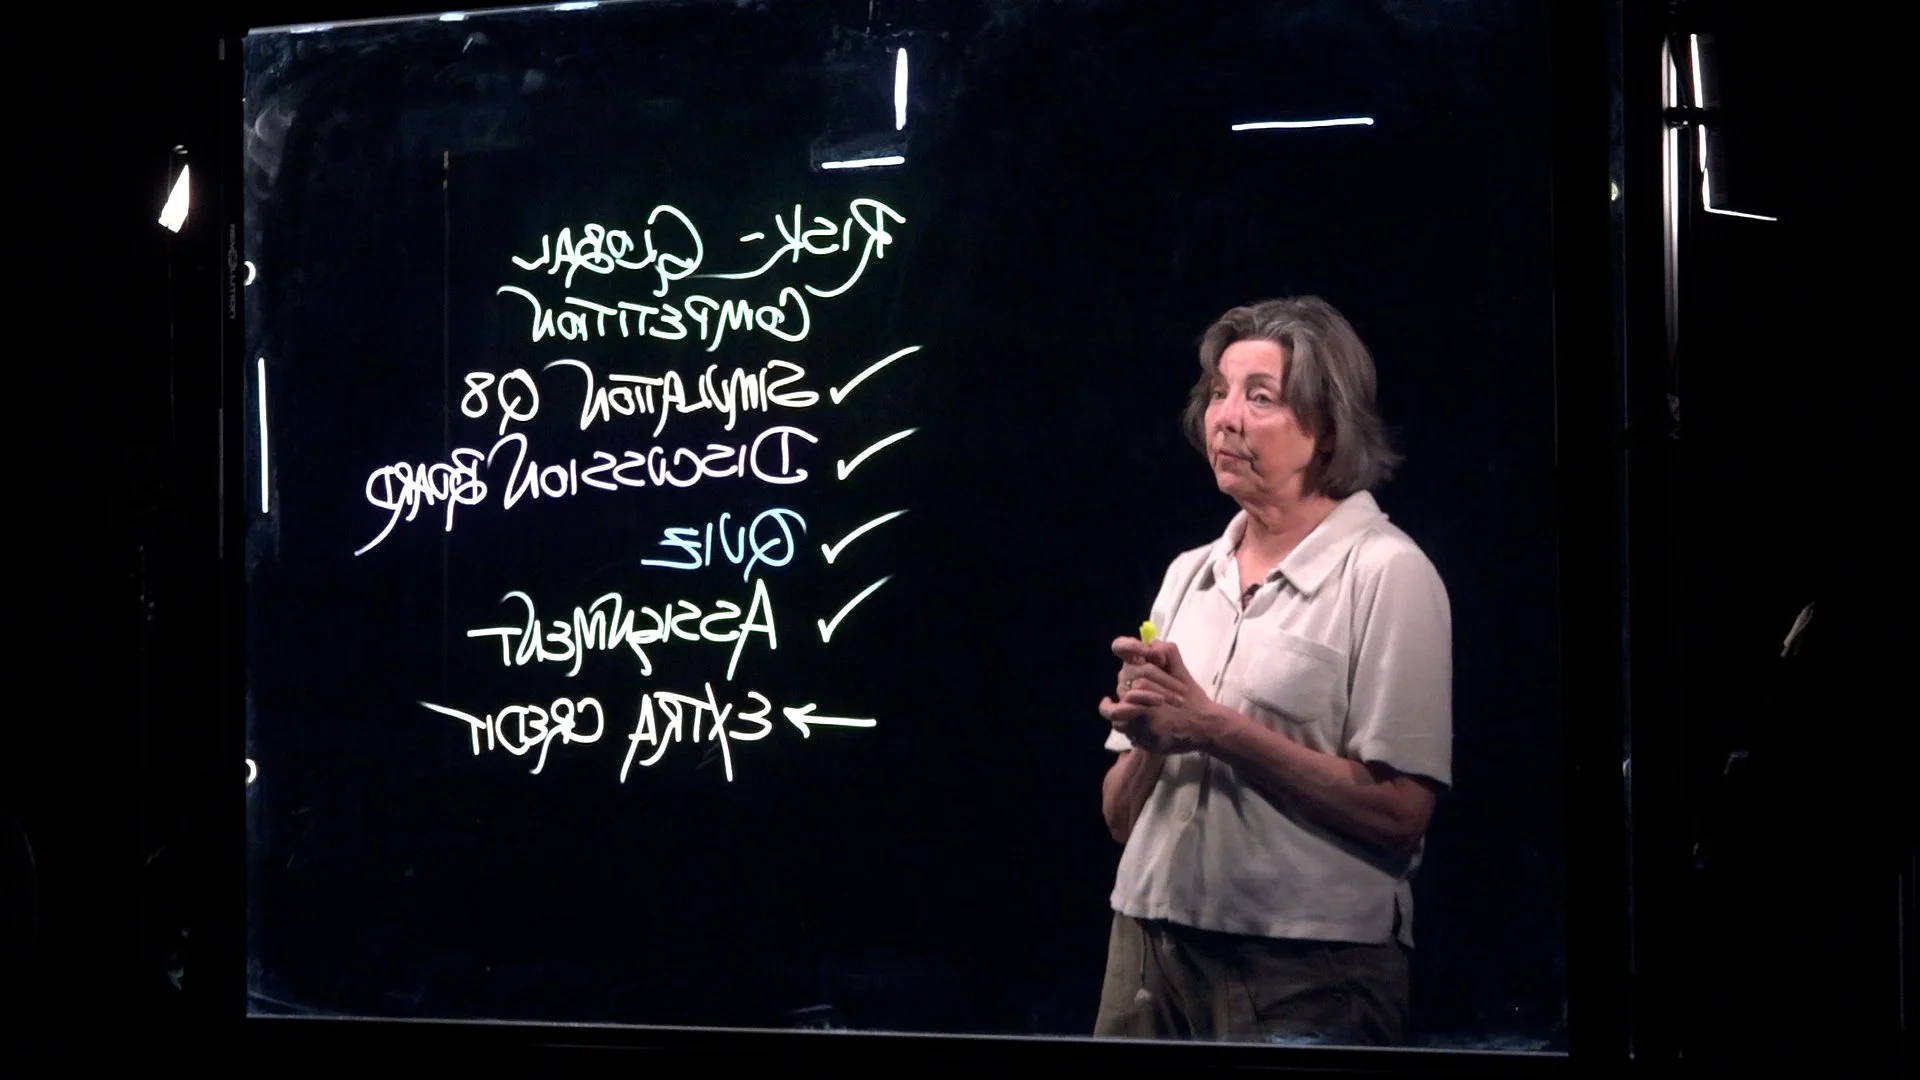 RISK - GLOBAL
COMPETITION
✓ SIMULATION Q8
✓ DISCUSSION BOARD
✓ QUIZ
✓ ASSIGNMENT
→ EXTRA CREDIT